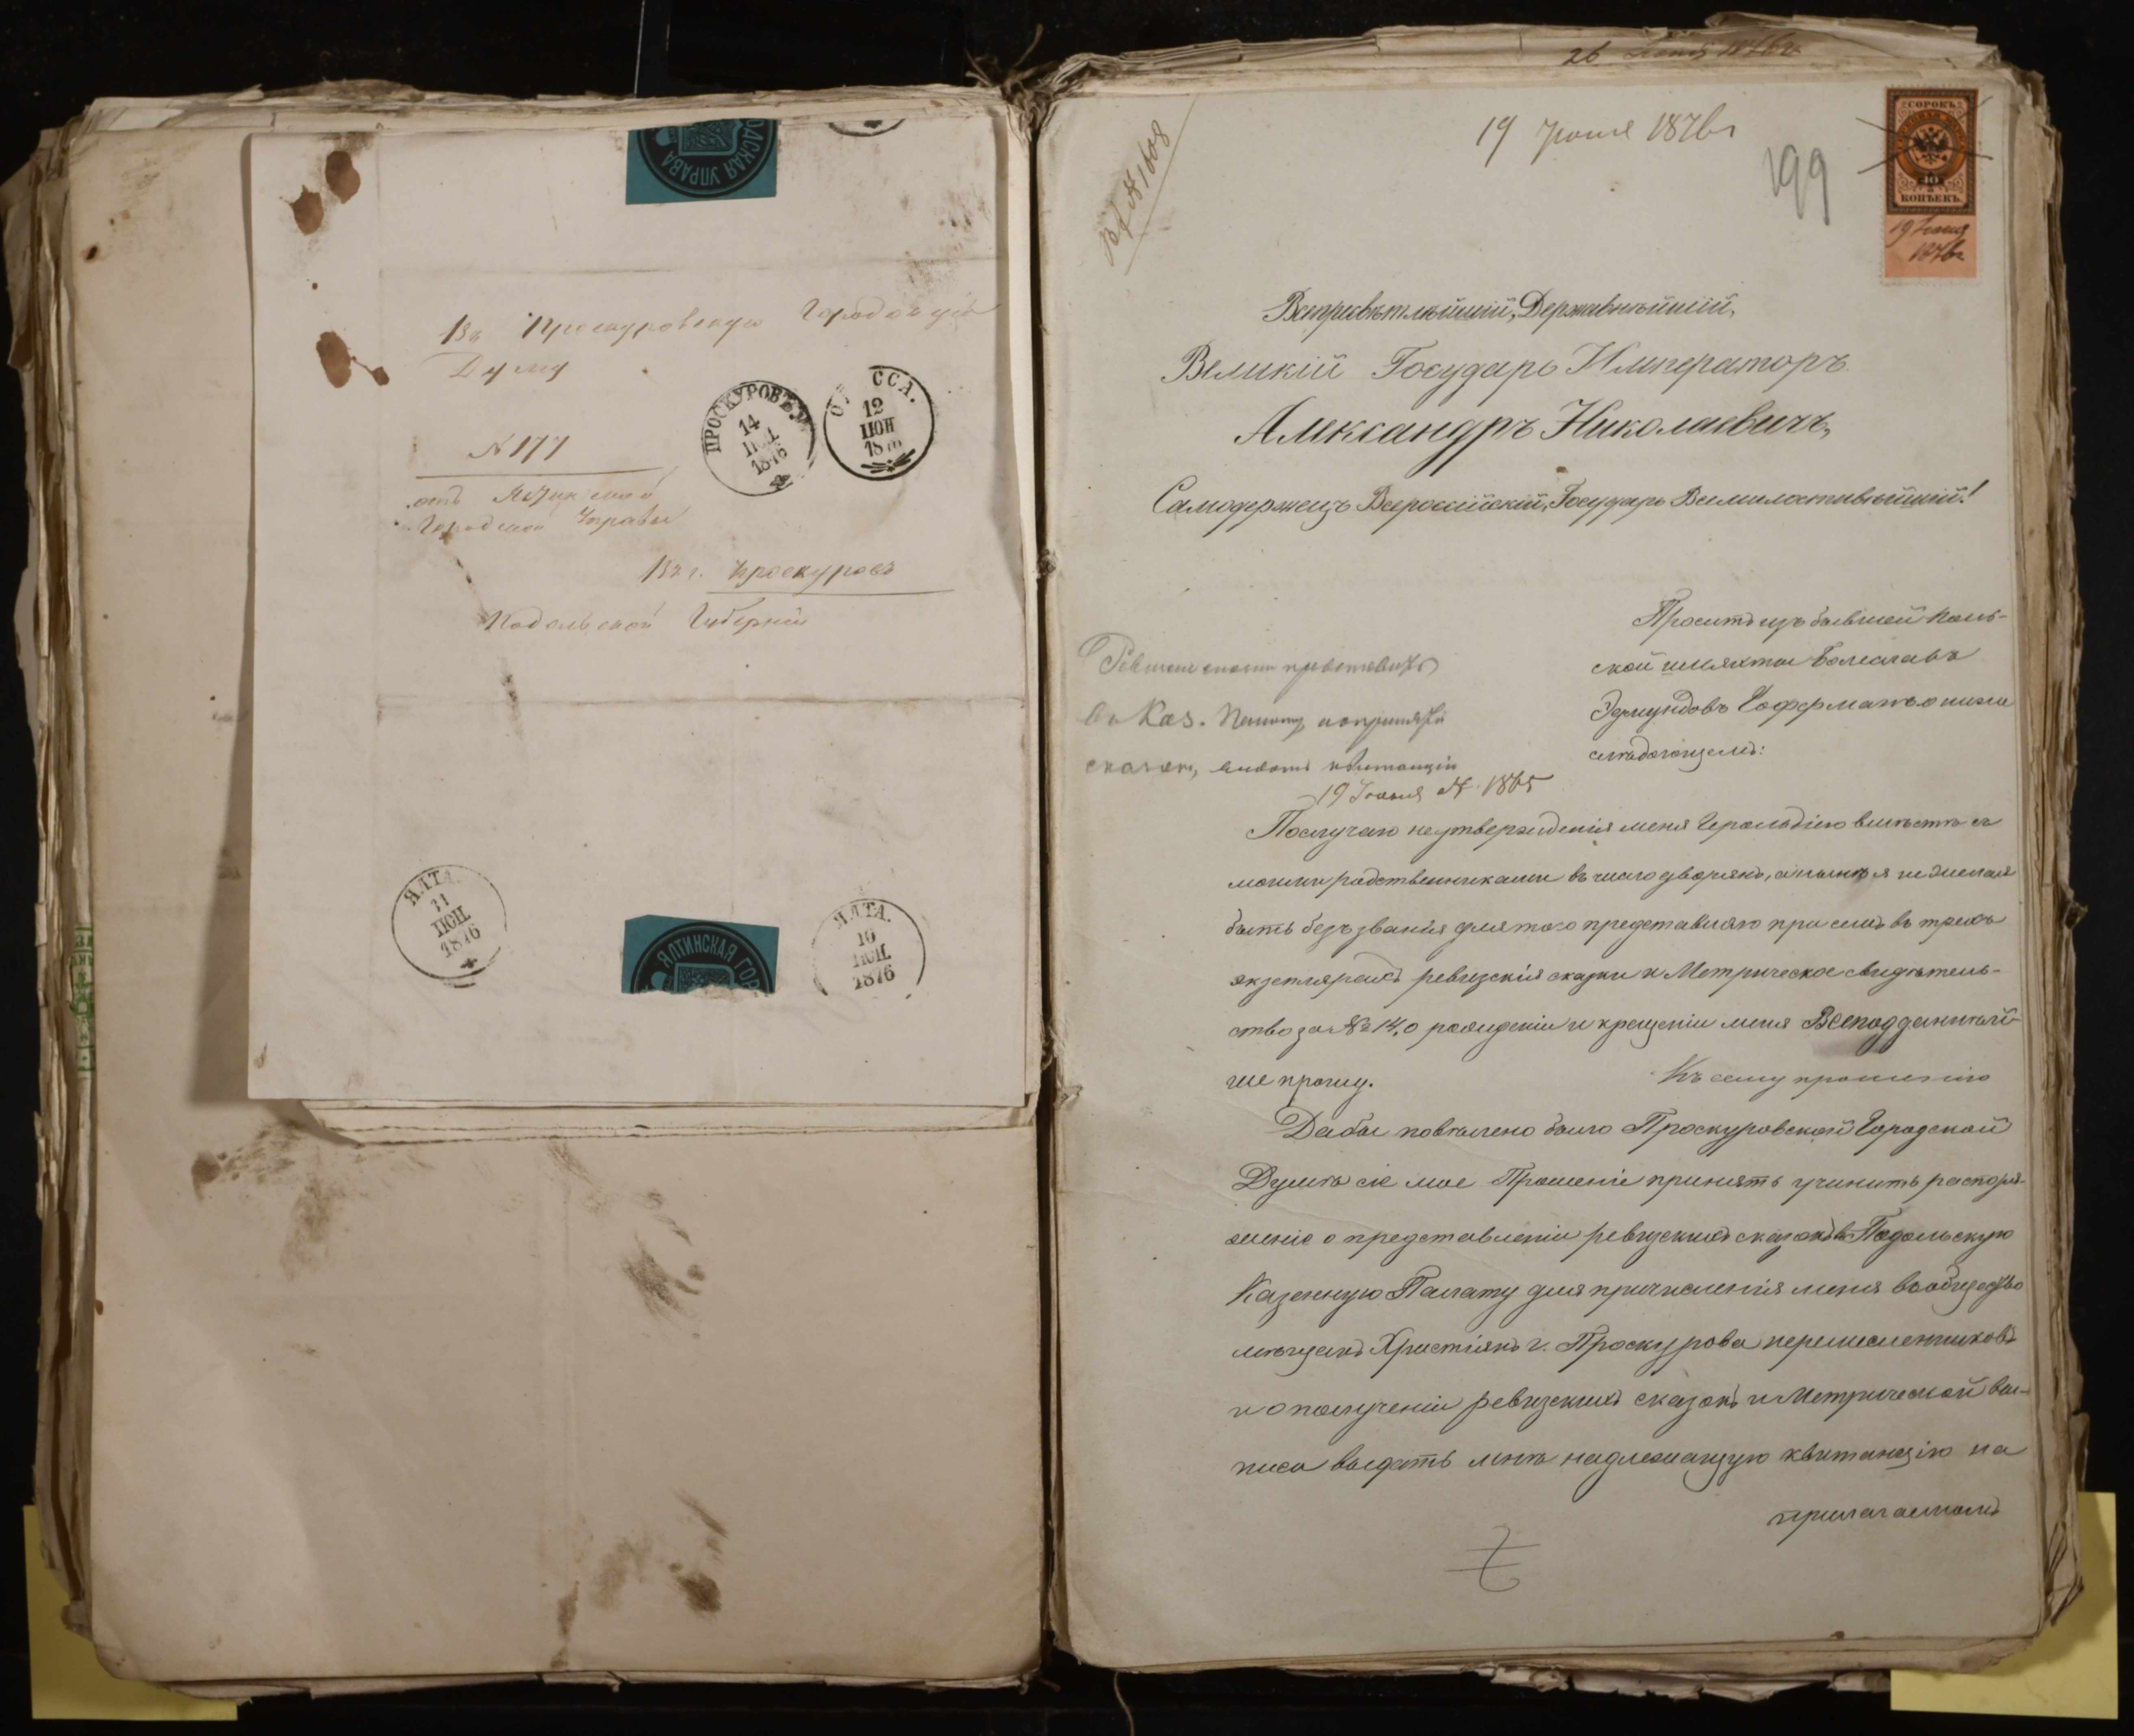 ОДСКАЯ УПРАВА
Въ Проскуровскую Городскую
Думу
ПРОСКУРОВЪ
14
1876
ССА.
12
ІЮН
187
№ 177
отъ Ялтинской
Городской Управы
Въ г. Проскуровъ
Подольской Губерніи
ЯЛТА.
11
ІЮН.
1876
ЯЛТИНСКАЯ ГОР
ЯЛТА.
10
ІЮН.
1876
26 1876 г.
19 Іюня 1876 г
199
СОРОКЪ
40
КОПѢЕКЪ.
19 Іюня
1876 г
Вх № 1608
Всепресвѣтлѣйшій, Державнѣйшій,
Великій Государь Императоръ
Александръ Николаевичъ,
Самодержецъ Всероссійскій, Государь Всемилостивѣйшій!
Проситъ изъ бывшей поль-
ской шляхты Болеславъ
Эдмундовъ Гофманъ о ниже
слѣдующемъ:
въ Каз. Палату
сказокъ, выдать квитанцію
19 Іюня № 1865
Послучаю неутвержденія меня Герольдіею вмѣстѣ съ
моими родственниками въ число дворянъ, а нынѣ я не желая
быть безъ званія для того представляю при семъ въ трехъ
экземплярахъ ревизскія сказки и Метрическое свидѣтель-
ство за № 14, о рожденіи и крещеніи меня Всеподданнѣй-
ше прошу.
Къ сему прошенію
Дабы повелено было Проскуровской Городской
Думѣ сіе мое Прошеніе принять учинить распоря-
женіе о представленіи ревизскихъ сказокъ в Подольскую
Казенную Палату для причисленія меня въ общество
мѣщанъ Христіянъ г. Проскурова
и о полученіи ревизскихъ сказокъ и Метрической вы-
писи выдать мнѣ надлежащую квитанцію на
прилагаемомъ